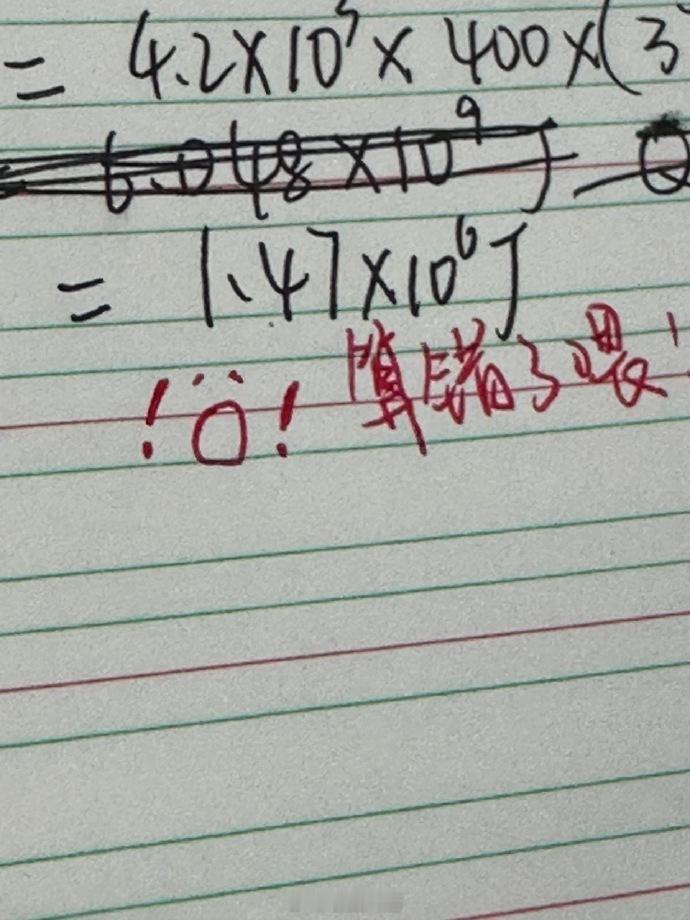 = 4.2×10³× 400×(3
6.048×10⁹ J
= 1.47×10⁶J
!Ö! 算错了嘤!